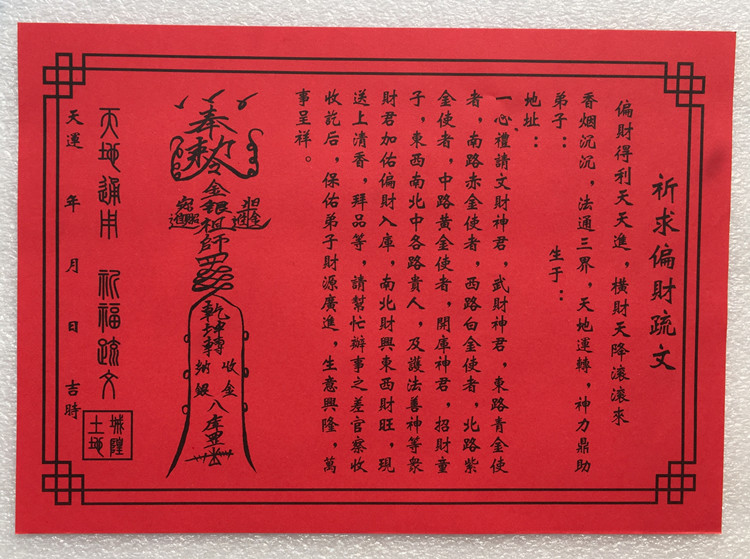 祈求偏財疏文
偏財得利天天進，橫財天降滾滾來
香烟沉沉，法通三界，天地運轉，神力鼎助
弟子： 生于：
地址：
一心禮請文財神君，武財神君，東路青金使
者，南路赤金使者，西路白金使者，北路紫
金使者，中路黃金使者，開庫神君，招財童
子，東西南北中各路貴人，及護法善神等衆
財君加佑偏財入庫，南北財興東西財旺，現
送上清香，拜品等，請幫忙辦事之差官察收
收訖后，保佑弟子財源廣進，生意興隆，萬
事呈祥。
奉
金銀祖師
乾坤轉
收金
納銀
八庫罡
天地通用 祈福疏文
天運 年 月 日 吉時
城隍
土地